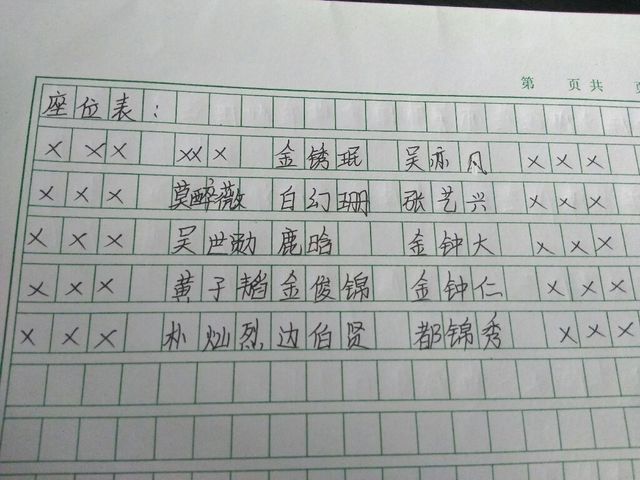 第 页 共 页
座位表：
××× ××× 金锈珉 吴亦凡 ×××
××× 莫醉薇 白幻珊 张艺兴 ×××
××× 吴世勋 鹿晗 金钟大 ×××
××× 黄子韬 金俊锦 金钟仁 ×××
××× 朴灿烈 边伯贤 都锦秀 ×××